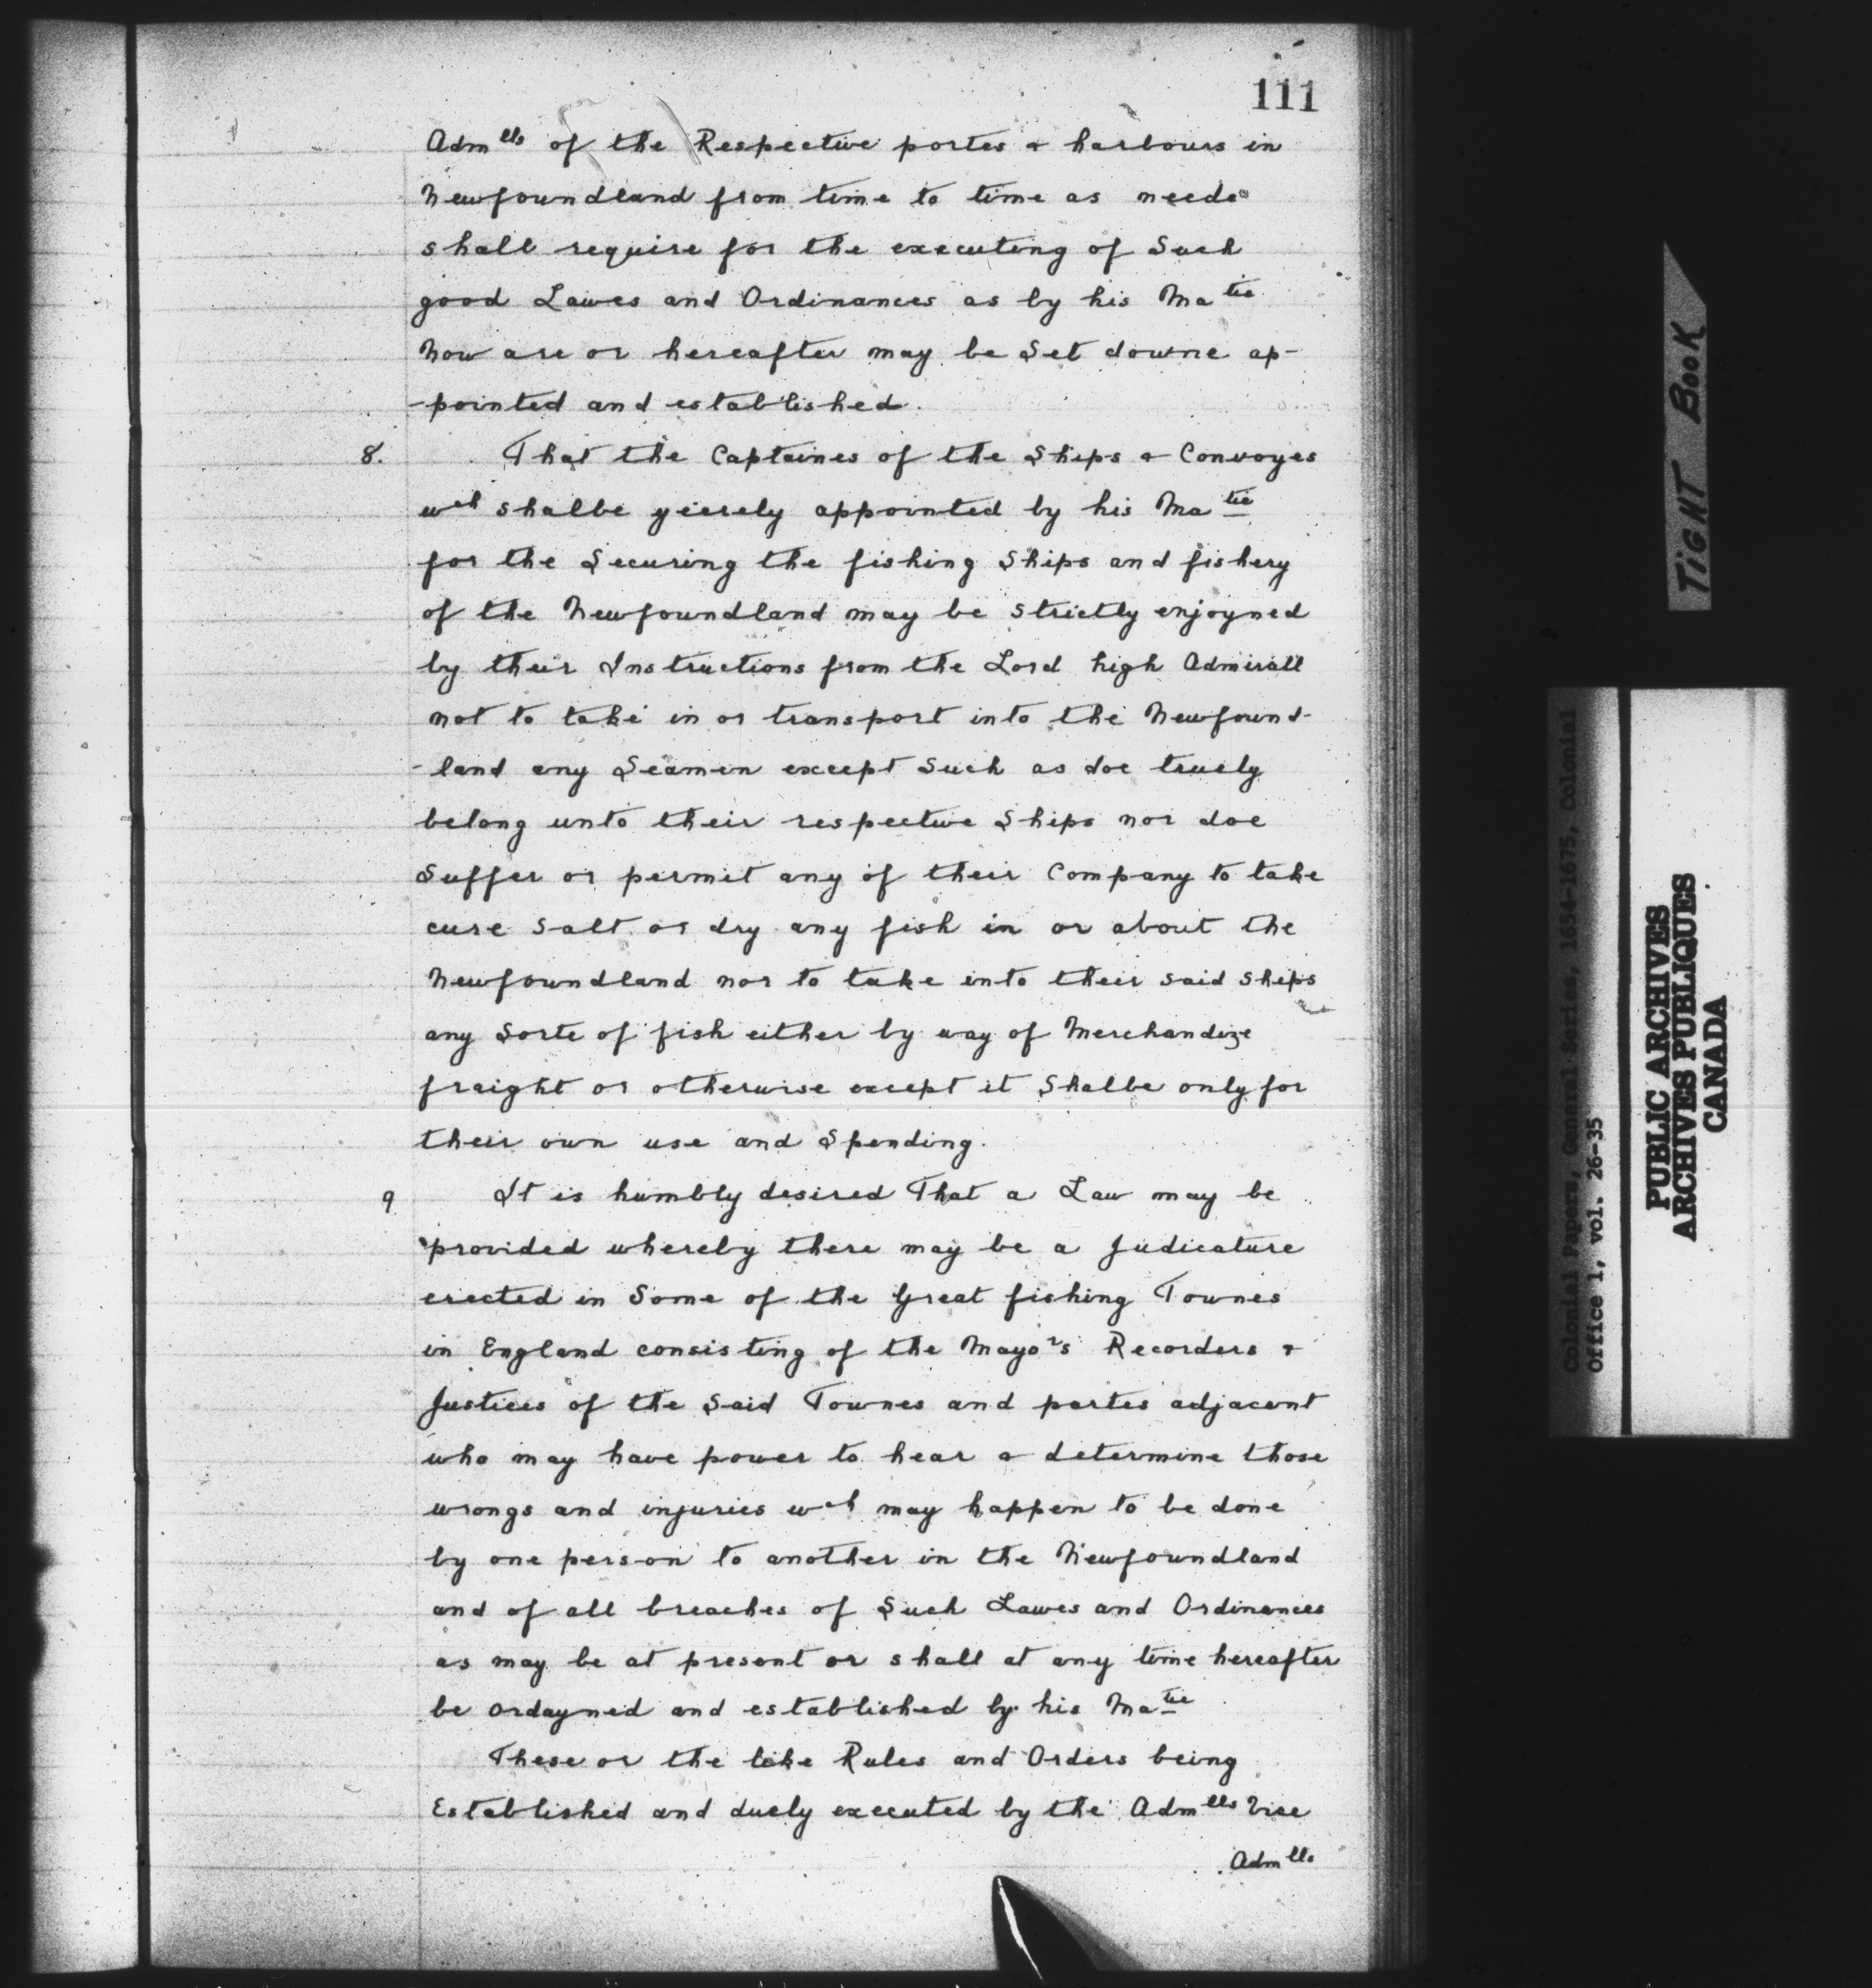 111
Adm^lls of the Respective portes & harbours in
Newfoundland from time to time as neede
shall require for the executing of Such
good Lawes and Ordinances as by his Ma^tie
Now are or hereafter may be Set downe ap-
-pointed and established.
8. That the Captaines of the Ships & Convoyes
w^ch shalbe yeerely appointed by his Ma^tie
for the Securing the fishing Ships and fishery
of the Newfoundland may be strictly enjoyned
by their Instructions from the Lord high Admirall
not to take in or transport into the Newfound-
-land any Seamen except Such as doe truely
belong unto their respective Ships nor doe
Suffer or permit any of their Company to take
cure salt or dry any fish in or about the
Newfoundland nor to take into their said ships
any Sorte of fish either by way of Merchandize
fraight or otherwise except it Shalbe only for
their own use and Spending.
9 It is humbly desired That a Law may be
provided whereby there may be a Judicature
erected in Some of the Great fishing Townes
in England consisting of the Mayo^rs Recorders &
Justices of the Said Townes and partes adjacent
who may have power to hear & determine those
wrongs and injuries w^ch may happen to be done
by one person to another in the Newfoundland
and of all breaches of Such Lawes and Ordinances
as may be at present or shall at any time hereafter
be ordayned and established by his Ma^tie
These or the like Rules and Orders being
Established and duely executed by the Adm^lls Vice
Adm^lls
TIGHT BOOK
Colonial Papers, General Series, 1654-1675, Colonial
Office 1, vol. 26-35
PUBLIC ARCHIVES
ARCHIVES PUBLIQUES
CANADA